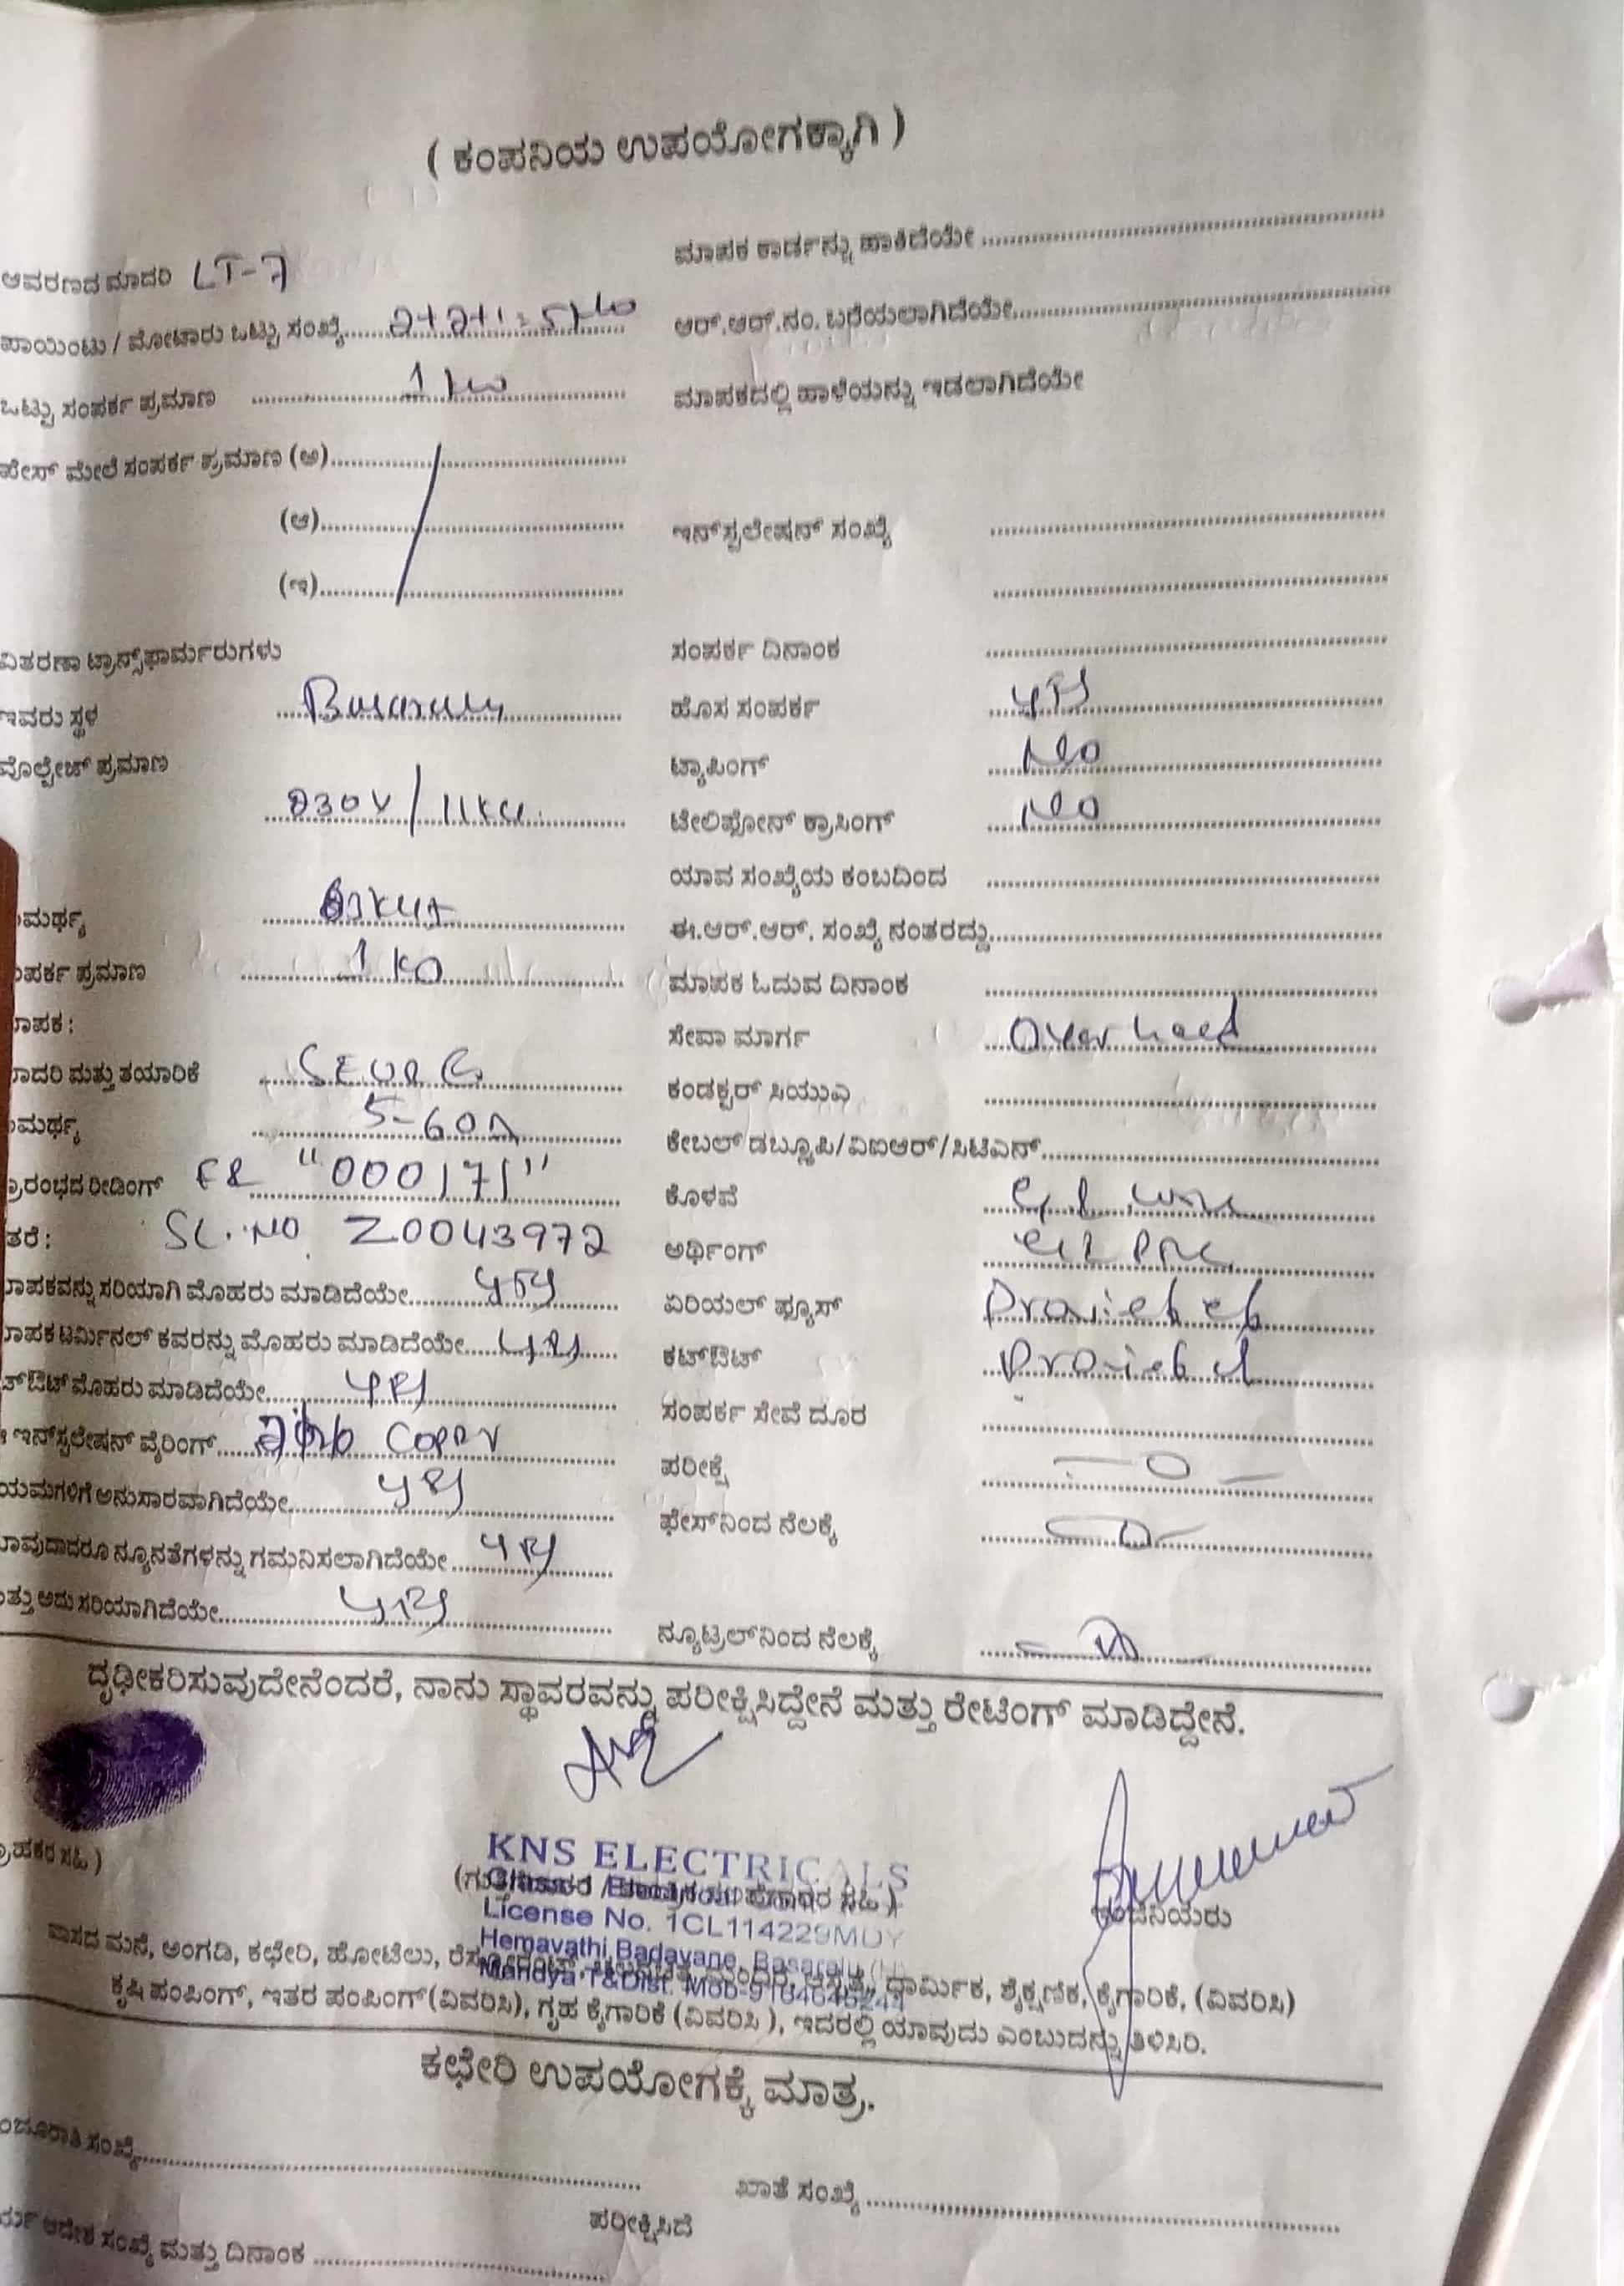 ( ಕಂಪನಿಯ ಉಪಯೋಗಕ್ಕಾಗಿ )
ಆವರಣದ ಮಾದರಿ LT-7
ಪಾಯಿಂಟು / ಮೋಟಾರು ಒಟ್ಟು ಸಂಖ್ಯೆ 2+2+1=5
ಒಟ್ಟು ಸಂಪರ್ಕ ಪ್ರಮಾಣ 1 kw
ಫೇಸ್ ಮೇಲೆ ಸಂಪರ್ಕ ಪ್ರಮಾಣ (ಅ)
(ಆ)
(ಇ)
ವಿತರಣಾ ಟ್ರಾನ್ಸ್‌ಫಾರ್ಮರುಗಳು
ಇವರು ಸ್ಥಳ
ವೋಲ್ಟೇಜ್ ಪ್ರಮಾಣ
230V / 11KV
ಮರ್ಥ್ಯ
ಂಪರ್ಕ ಪ್ರಮಾಣ 1 KW
ಾಪಕ :
ಾದರಿ ಮತ್ತು ತಯಾರಿಕೆ
ಮರ್ಥ್ಯ 5-60A
ಪ್ರಾರಂಭದ ರೀಡಿಂಗ್ FR "000171"
ತರೆ : SL. NO. Z0043972
ಾಪಕವನ್ನು ಸರಿಯಾಗಿ ಮೊಹರು ಮಾಡಿದೆಯೇ yes
ಾಪಕ ಟರ್ಮಿನಲ್ ಕವರನ್ನು ಮೊಹರು ಮಾಡಿದೆಯೇ yes
ಟ್‌ಔಟ್ ಮೊಹರು ಮಾಡಿದೆಯೇ yes
ಇನ್‌ಸ್ಟಲೇಷನ್ ವೈರಿಂಗ್
ಯಮಗಳಿಗೆ ಅನುಸಾರವಾಗಿದೆಯೇ yes
ಾವುದಾದರೂ ನ್ಯೂನತೆಗಳನ್ನು ಗಮನಿಸಲಾಗಿದೆಯೇ yes
ತ್ತು ಅದು ಸರಿಯಾಗಿದೆಯೇ yes
ಮಾಪಕ ಕಾರ್ಡನ್ನು ಹಾಕಿದೆಯೇ
ಆರ್.ಆರ್.ನಂ. ಬರೆಯಲಾಗಿದೆಯೇ
ಮಾಪಕದಲ್ಲಿ ಹಾಳೆಯನ್ನು ಇಡಲಾಗಿದೆಯೇ
ಇನ್‌ಸ್ಟಲೇಷನ್ ಸಂಖ್ಯೆ
ಸಂಪರ್ಕ ದಿನಾಂಕ
ಹೊಸ ಸಂಪರ್ಕ yes
ಟ್ಯಾಪಿಂಗ್ No
ಟೇಲಿಫೋನ್ ಕ್ರಾಸಿಂಗ್ No
ಯಾವ ಸಂಖ್ಯೆಯ ಕಂಬದಿಂದ
ಈ.ಆರ್.ಆರ್. ಸಂಖ್ಯೆ ನಂತರದ್ದು
ಮಾಪಕ ಓದುವ ದಿನಾಂಕ
ಸೇವಾ ಮಾರ್ಗ Over head
ಕಂಡಕ್ಟರ್ ಸಿಯುಎ
ಕೇಬಲ್ ಡಬ್ಲ್ಯೂಪಿ/ವಿಐಆರ್/ಸಿಟಿಎಸ್
ಕೊಳವೆ
ಅರ್ಥಿಂಗ್
ಏರಿಯಲ್ ಫ್ಯೂಸ್ Provided
ಕಟ್‌ಔಟ್ Provided
ಸಂಪರ್ಕ ಸೇವೆ ದೂರ
ಪರೀಕ್ಷೆ
ಫೇಸ್‌ನಿಂದ ನೆಲಕ್ಕೆ
ನ್ಯೂಟ್ರಲ್‌ನಿಂದ ನೆಲಕ್ಕೆ
ದೃಢೀಕರಿಸುವುದೇನೆಂದರೆ, ನಾನು ಸ್ಥಾವರವನ್ನು ಪರೀಕ್ಷಿಸಿದ್ದೇನೆ ಮತ್ತು ರೇಟಿಂಗ್ ಮಾಡಿದ್ದೇನೆ.
್ರಾಹಕರ ಸಹಿ )
KNS ELECTRICALS
License No. 1CL114229MDY
Hemavathi Badavane, Basaralu (H)
Mandya T&Dist. Mob-
ಇಂಜಿನಿಯರು
ವಾಸದ ಮನೆ, ಅಂಗಡಿ, ಕಛೇರಿ, ಹೋಟೆಲು, ಆಸ್ಪತ್ರೆ, ಧಾರ್ಮಿಕ, ಶೈಕ್ಷಣಿಕ, ಕೈಗಾರಿಕೆ, (ವಿವರಿಸಿ)
ಕೃಷಿ ಪಂಪಿಂಗ್, ಇತರ ಪಂಪಿಂಗ್ (ವಿವರಿಸಿ), ಗೃಹ ಕೈಗಾರಿಕೆ (ವಿವರಿಸಿ ), ಇದರಲ್ಲಿ ಯಾವುದು ಎಂಬುದನ್ನು ತಿಳಿಸಿರಿ.
ಕಛೇರಿ ಉಪಯೋಗಕ್ಕೆ ಮಾತ್ರ.
ಂಜೂರಾತಿ ಸಂಖ್ಯೆ
ಖಾತೆ ಸಂಖ್ಯೆ
ಪರೀಕ್ಷಿಸಿದೆ
ಆದೇಶ ಸಂಖ್ಯೆ ಮತ್ತು ದಿನಾಂಕ